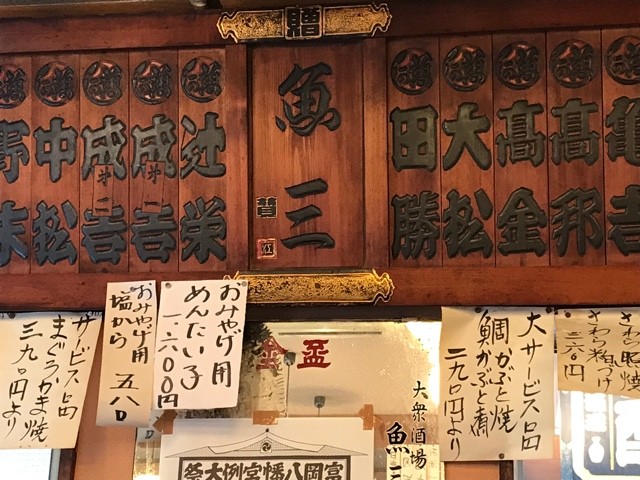 贈
魚三
賛
辻栄
成第一岩
成第二岩
中松
田勝
大松
高金
高邦
亀吉
おみやげ用
めんたい子
一、六〇〇円
おみやげ用
塩から
五八〇
サービス品
まぐろかま焼
三九〇円より
大サービス品
鯛かぶと焼
鯛かぶと煮
二九〇円より
さわら照焼
さわら粕づけ
金盃
大衆酒場
魚三
富岡八幡宮例大祭